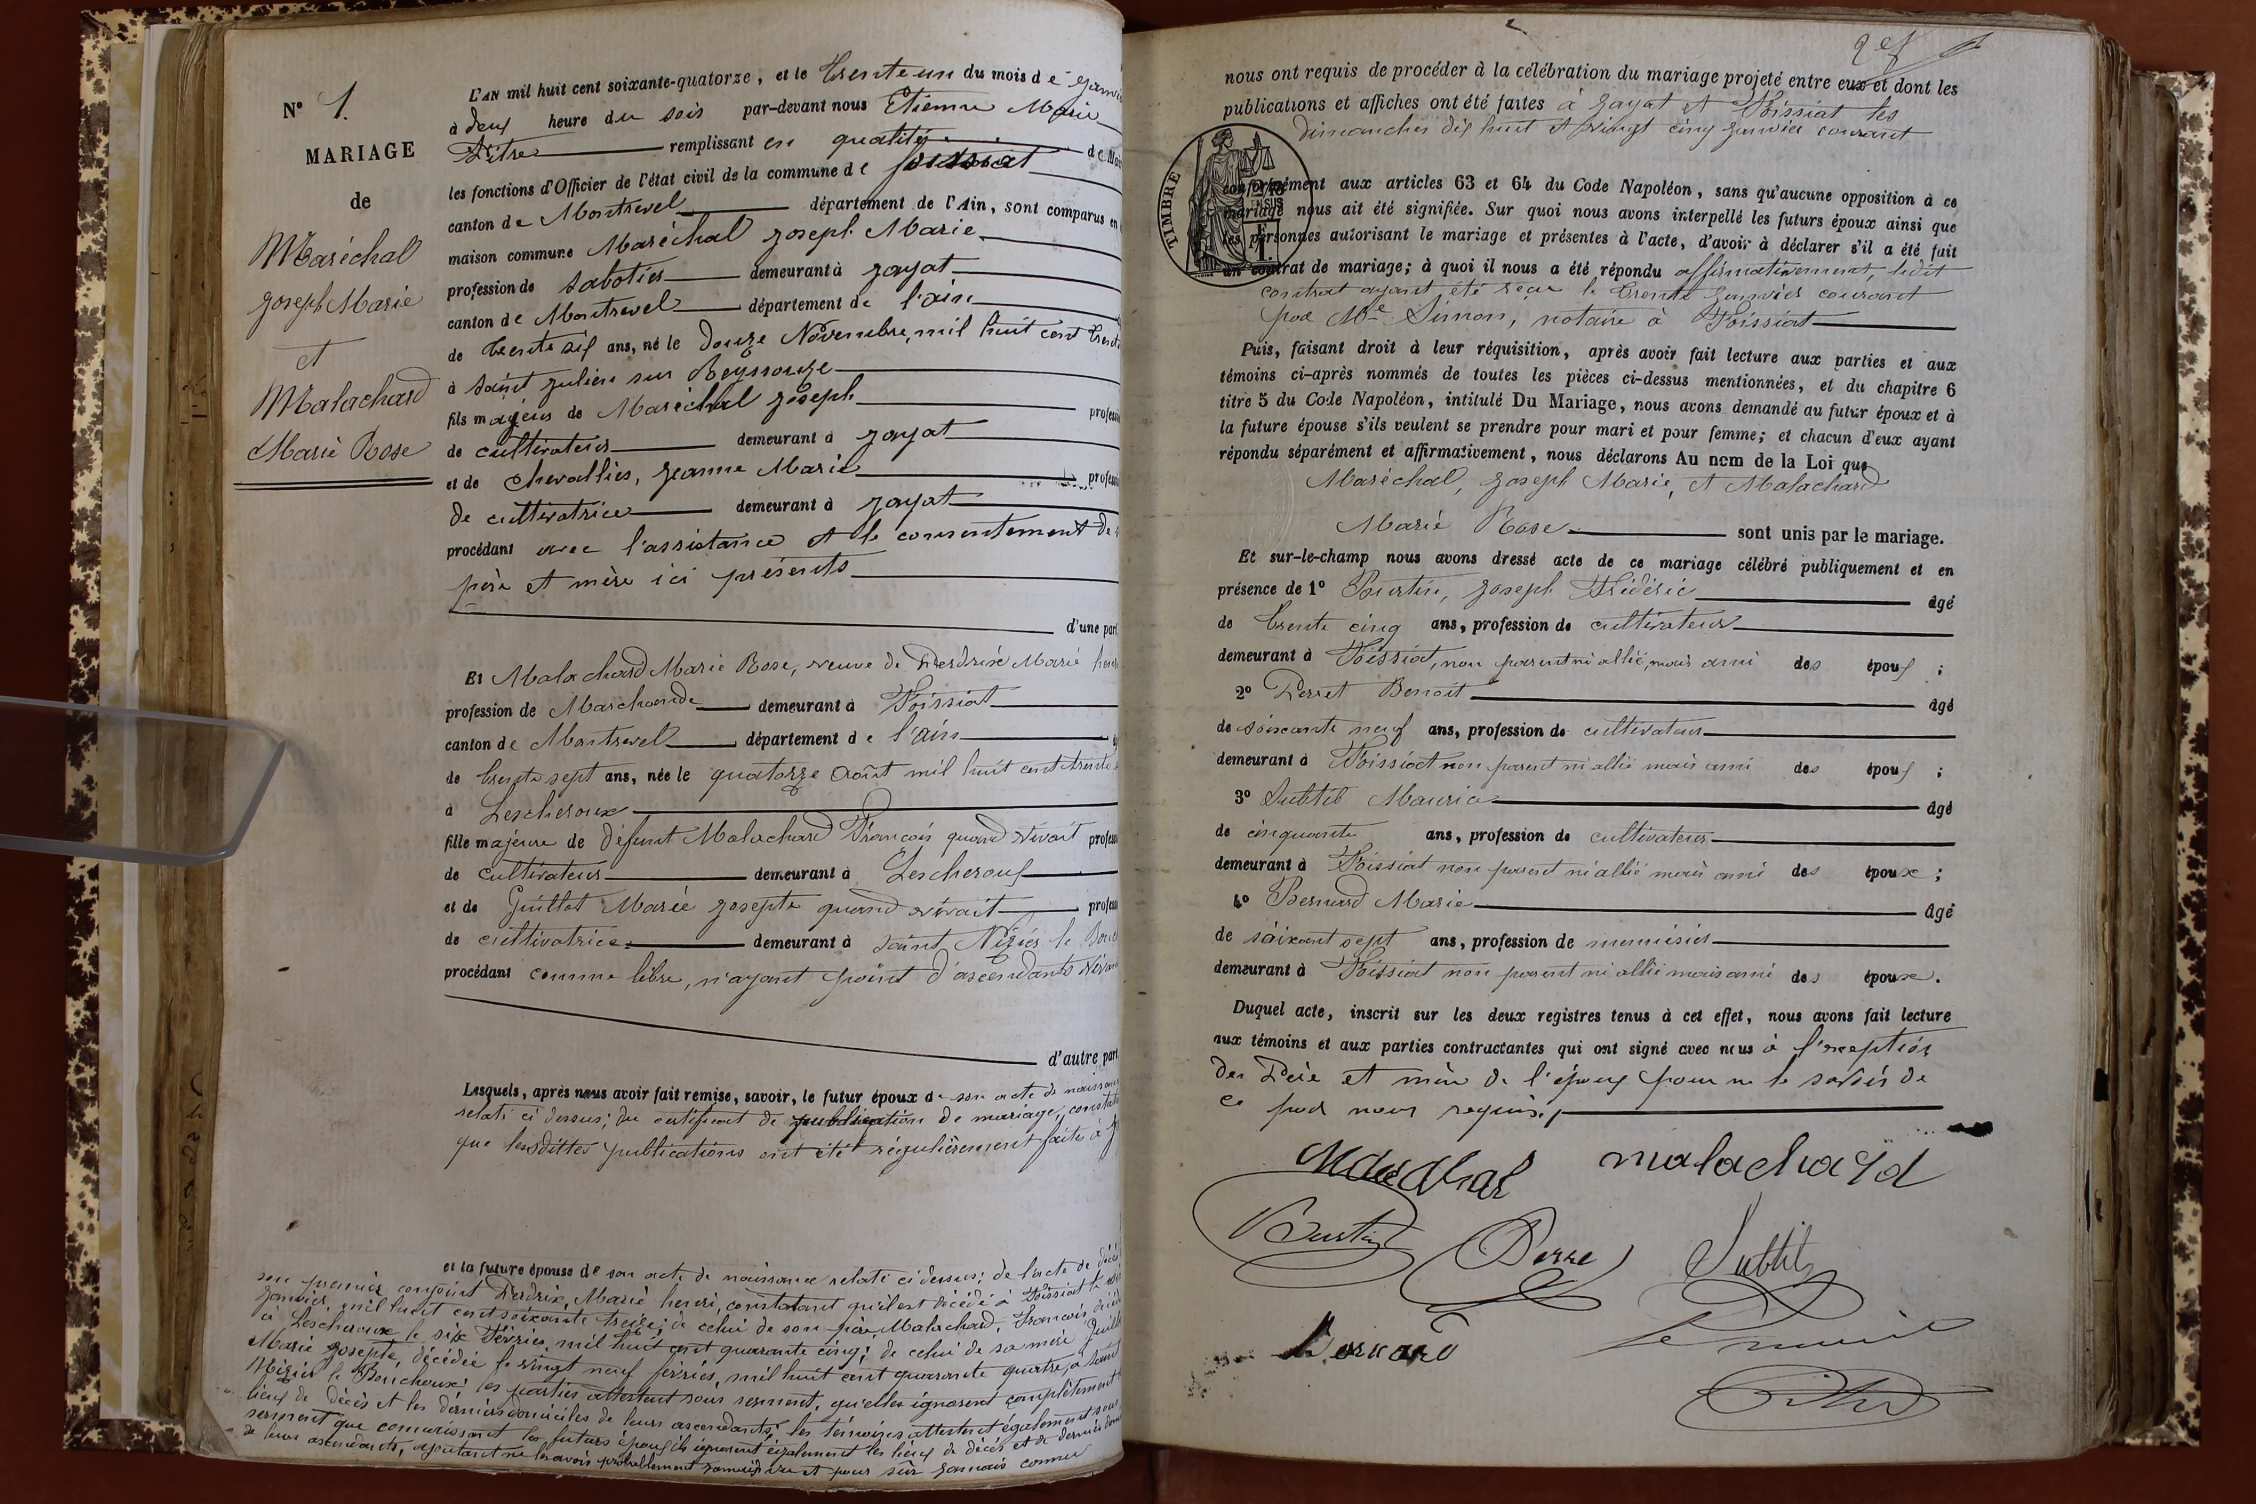 N° 1.
MARIAGE
de
Maréchal
Joseph Marie
et
Malachard
Marie Rose
L'AN mil huit cent soixante-quatorze, et le trente un du mois de Janvi
à deux heure du soir par-devant nous Etienne Marie
remplissant en qualité de Mai
les fonctions d'Officier de l'état civil de la commune de foissiat
canton de Montrevel département de l'Ain, sont comparus en
maison commune Maréchal Joseph Marie
profession de sabotier demeurant à Jayat
canton de Montrevel département de l'ain
de trente six ans, né le douze Novembre, mil huit cent trent
à Saint Julien sur Reyssouze
fils majeur de Maréchal Joseph profess
de cultivateur demeurant à Jayat
et de Chevallier, Jeanne Marie profess
de cultivatrice demeurant à Jayat
procédant avec l'assistance et le consentement de s
père et mère ici présents
d'une part
Et Malachard Marie Rose, veuve de Perdrix Marie henri
profession de Marchande demeurant à Foissiat
canton de Montrevel département de l'ain
de trente sept ans, née le quatorze Août mil huit cent trente
à Lescheroux
fille majeure de défunt Malachard François quand vivait profess
de cultivateur demeurant à Lescheroux
et de Guillot Marie Josepte quand vivait profess
de cultivatrice demeurant à Saint Nizier le Bouc
procédant comme libre, n'ayant point d'ascendants vivan
d'autre part
Lesquels, après nous avoir fait remise, savoir, le futur époux de son acte de naissanc
relaté ci dessus; du certificat de publication de mariage, constata
que lesdittes publications ont été régulièrement faites à J
et la future épouse de son acte de naissance relaté ci dessus; de l'acte de décè
son premier conjoint Perdrix, Marie henri, constatant qu'il est décédé à Foissiat le
Janvier, mil huit cent soixante treize; de celui de son père Malachard, François, décéd
à Lescheroux le six Février, mil huit cent quarante cinq; de celui de sa mère Guillo
Marie Josepte, décédée le vingt neuf février, mil huit cent quarante quatre, à Saint
Nizier le Bouchoux; les parties attestent sous serment, qu'elles ignorent complètement
lieux de décès et les derniers domiciles de leurs ascendants; les témoins attestent également sous
serment que connaissant les futurs époux ils ignorent également les lieux de décès et de derniers domi
de leurs ascendants, ajoutant ne les avoir probablement jamais vu et pour sûr jamais connu
nous ont requis de procéder à la célébration du mariage projeté entre eux et dont les
publications et affiches ont été faites à Jayat et Foissiat les
dimanches dix huit et vingt cinq janvier courant
TIMBRE
conformément aux articles 63 et 64 du Code Napoléon, sans qu'aucune opposition à ce
mariage nous ait été signifiée. Sur quoi nous avons interpellé les futurs époux ainsi que
les personnes autorisant le mariage et présentes à l'acte, d'avoir à déclarer s'il a été fait
un contrat de mariage; à quoi il nous a été répondu affirmativement, ledit
contrat ayant été reçu le trente Janvier courant
par Me Simon, notaire à Foissiat
Puis, faisant droit à leur réquisition, après avoir fait lecture aux parties et aux
témoins ci-après nommés de toutes les pièces ci-dessus mentionnées, et du chapitre 6
titre 5 du Code Napoléon, intitulé Du Mariage, nous avons demandé au futur époux et à
la future épouse s'ils veulent se prendre pour mari et pour femme; et chacun d'eux ayant
répondu séparément et affirmativement, nous déclarons Au nom de la Loi que
Maréchal, Joseph Marie, et Malachard
Marie Rose sont unis par le mariage.
Et sur-le-champ nous avons dressé acte de ce mariage célébré publiquement et en
présence de 1° Burtin, Joseph Frédéric âgé
de trente cinq ans, profession de cultivateur
demeurant à Foissiat, non parent ni allié, mais ami des époux ;
2° Perret Benoit âgé
de soixante neuf ans, profession de cultivateur
demeurant à Foissiat non parent ni allié mais ami des époux ;
3° Subtil Maurice âgé
de cinquante ans, profession de cultivateur
demeurant à Foissiat non parent ni allié mais ami des époux ;
4° Bernard Marie âgé
de soixant sept ans, profession de menuisier
demeurant à Foissiat non parent ni allié mais ami des époux.
Duquel acte, inscrit sur les deux registres tenus à cet effet, nous avons fait lecture
aux témoins et aux parties contractantes qui ont signé avec nous à l'exception
des Père et mère de l'époux pour ne le savoir de
ce par nous requis.
Marechal malachard
Burtin Perre Subtil
Bernard